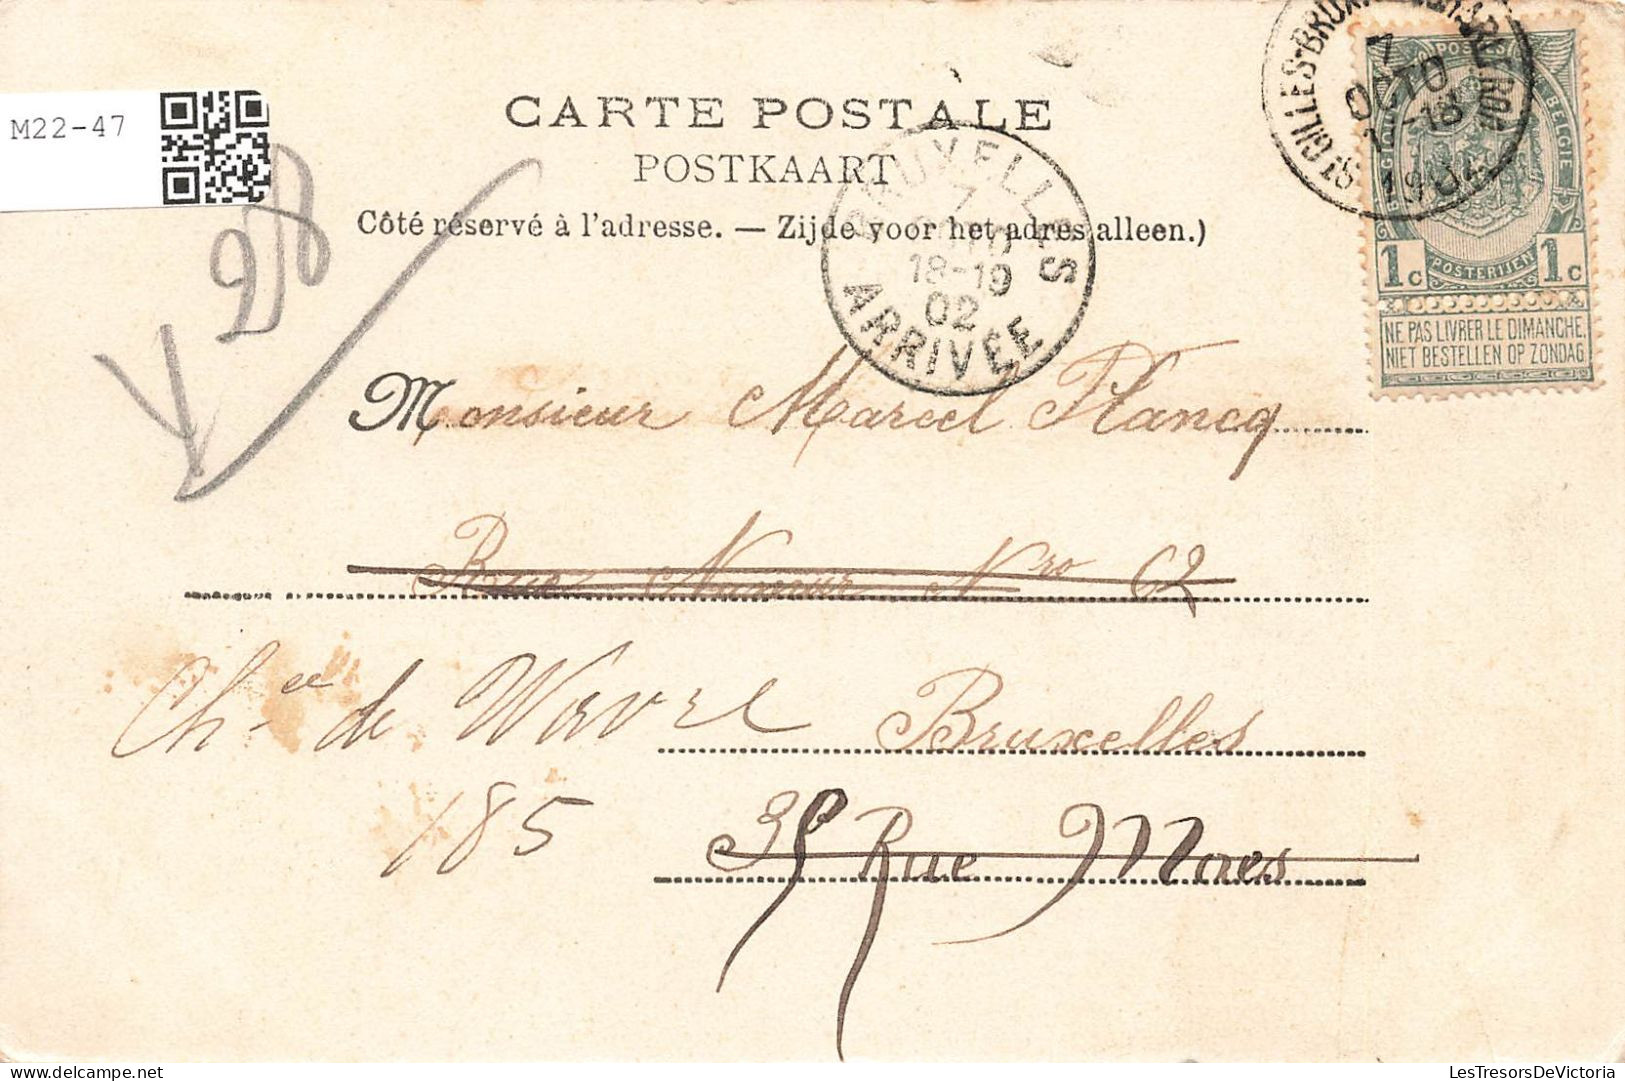 M22-47
CARTE POSTALE
POSTKAART
Côté réservé à l'adresse. — Zijde voor het adres alleen.)
BRUXELLES
7
18-19
02
ARRIVÉE
7
OCTO
POSTES
BELGIE
POSTERIJEN
1c 1c
NE PAS LIVRER LE DIMANCHE.
NIET BESTELLEN OP ZONDAG
Monsieur Marcel Plancq
Rue Namur Nro 62
Chée de Wavre Bruxelles
185 Rue Maes
LesTresorsDeVictoria